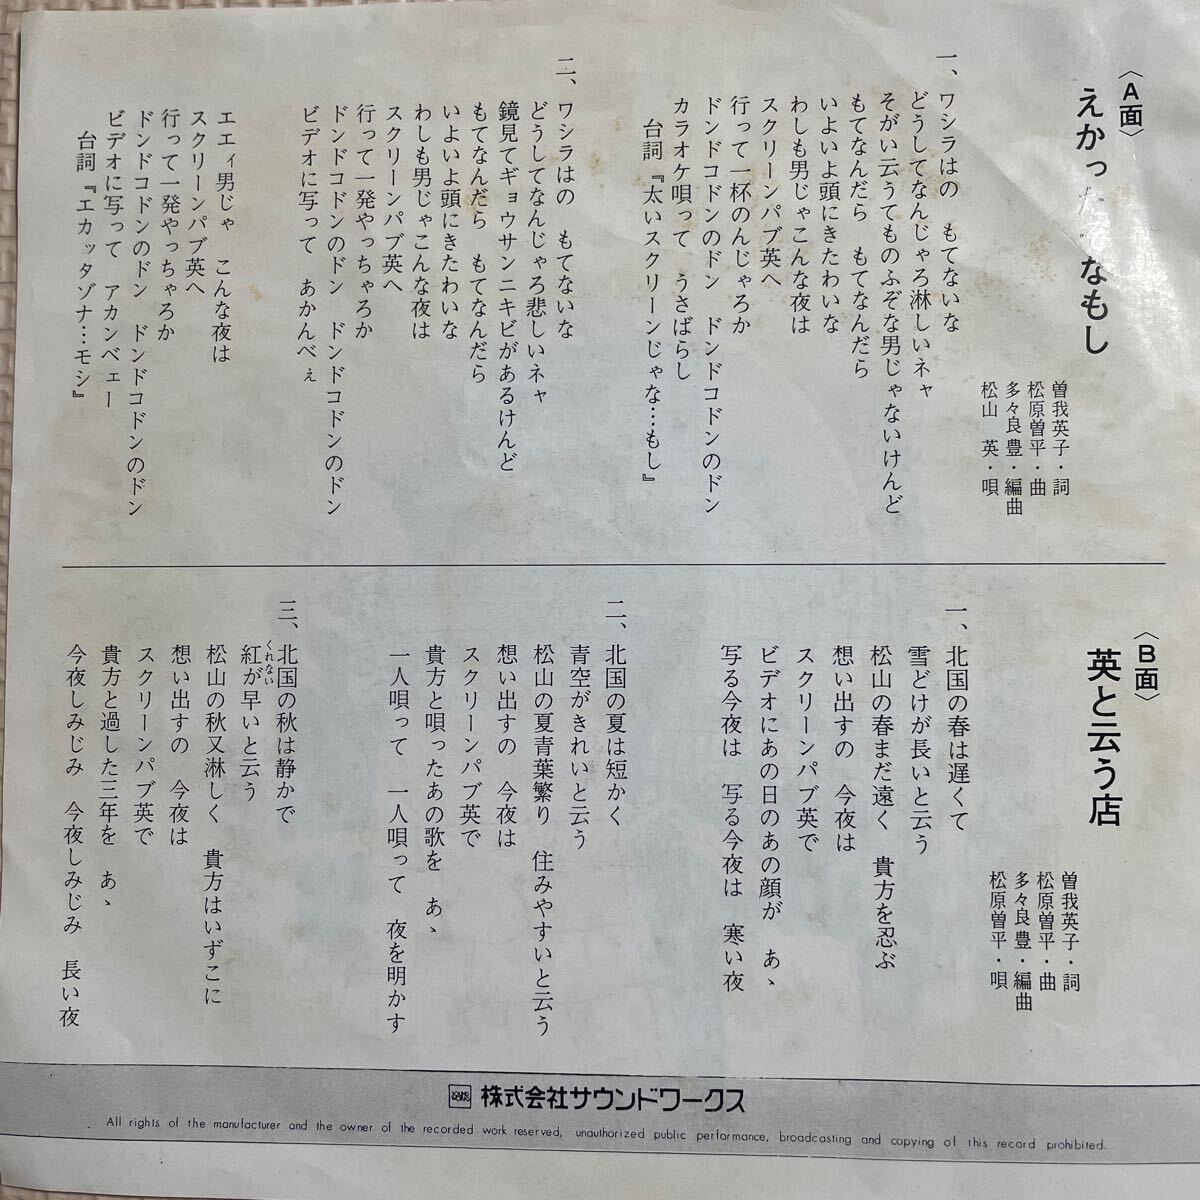 〈A面〉
えかっ なもし
曽我英子・詞
松原曽平・曲
多々良豊・編曲
松山 英・唄
一、ワシラはの もてないな
どうしてなんじゃろ淋しいネャ
そがい云うてものふぞな男じゃないけんど
もてなんだら もてなんだら
いよいよ頭にきたわいな
わしも男じゃこんな夜は
スクリーンパブ英へ
行って一杯のんじゃろか
ドンドコドンのドン ドンドコドンのドン
カラオケ唄って うさばらし
台詞『太いスクリーンじゃな…もし』
二、ワシラはの もてないな
どうしてなんじゃろ悲しいネャ
鏡見てギョウサンニキビがあるけんど
もてなんだら もてなんだら
いよいよ頭にきたわいな
わしも男じゃこんな夜は
スクリーンパブ英へ
行って一発やっちゃろか
ドンドコドンのドン ドンドコドンのドン
ビデオに写って あかんべぇ
エエィ男じゃ こんな夜は
スクリーンパブ英へ
行って一発やっちゃろか
ドンドコドンのドン ドンドコドンのドン
ビデオに写って アカンベェー
台詞『エカッタゾナ…モシ』
〈B面〉
英と云う店
曽我英子・詞
松原曽平・曲
多々良豊・編曲
松原曽平・唄
一、北国の春は遅くて
雪どけが長いと云う
松山の春まだ遠く 貴方を忍ぶ
想い出すの 今夜は
スクリーンパブ英で
ビデオにあの日のあの顔が あゝ
写る今夜は 写る今夜は 寒い夜
二、北国の夏は短かく
青空がきれいと云う
松山の夏青葉繁り 住みやすいと云う
想い出すの 今夜は
スクリーンパブ英で
貴方と唄ったあの歌を あゝ
一人唄って 一人唄って 夜を明かす
三、北国の秋は静かで
紅が早いと云う
くれない
松山の秋又淋しく 貴方はいずこに
想い出すの 今夜は
スクリーンパブ英で
貴方と過した三年を あゝ
今夜しみじみ 今夜しみじみ 長い夜
株式会社サウンドワークス
All rights of the manufacturer and the owner of the recorded work reserved, unauthorized public performance, broadcasting and copying of this record prohibited.